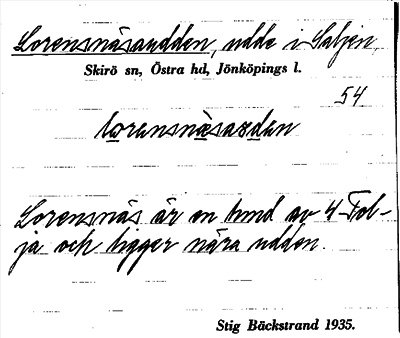 Lorensnäsaudden, udde i Saljen,
Skirö sn, Östra hd, Jönköpings l.
54
lorensnæsauden
Lorensnäs är en tund av 4 Fol-
ja och ligger nära udden.
Stig Bäckstrand 1935.